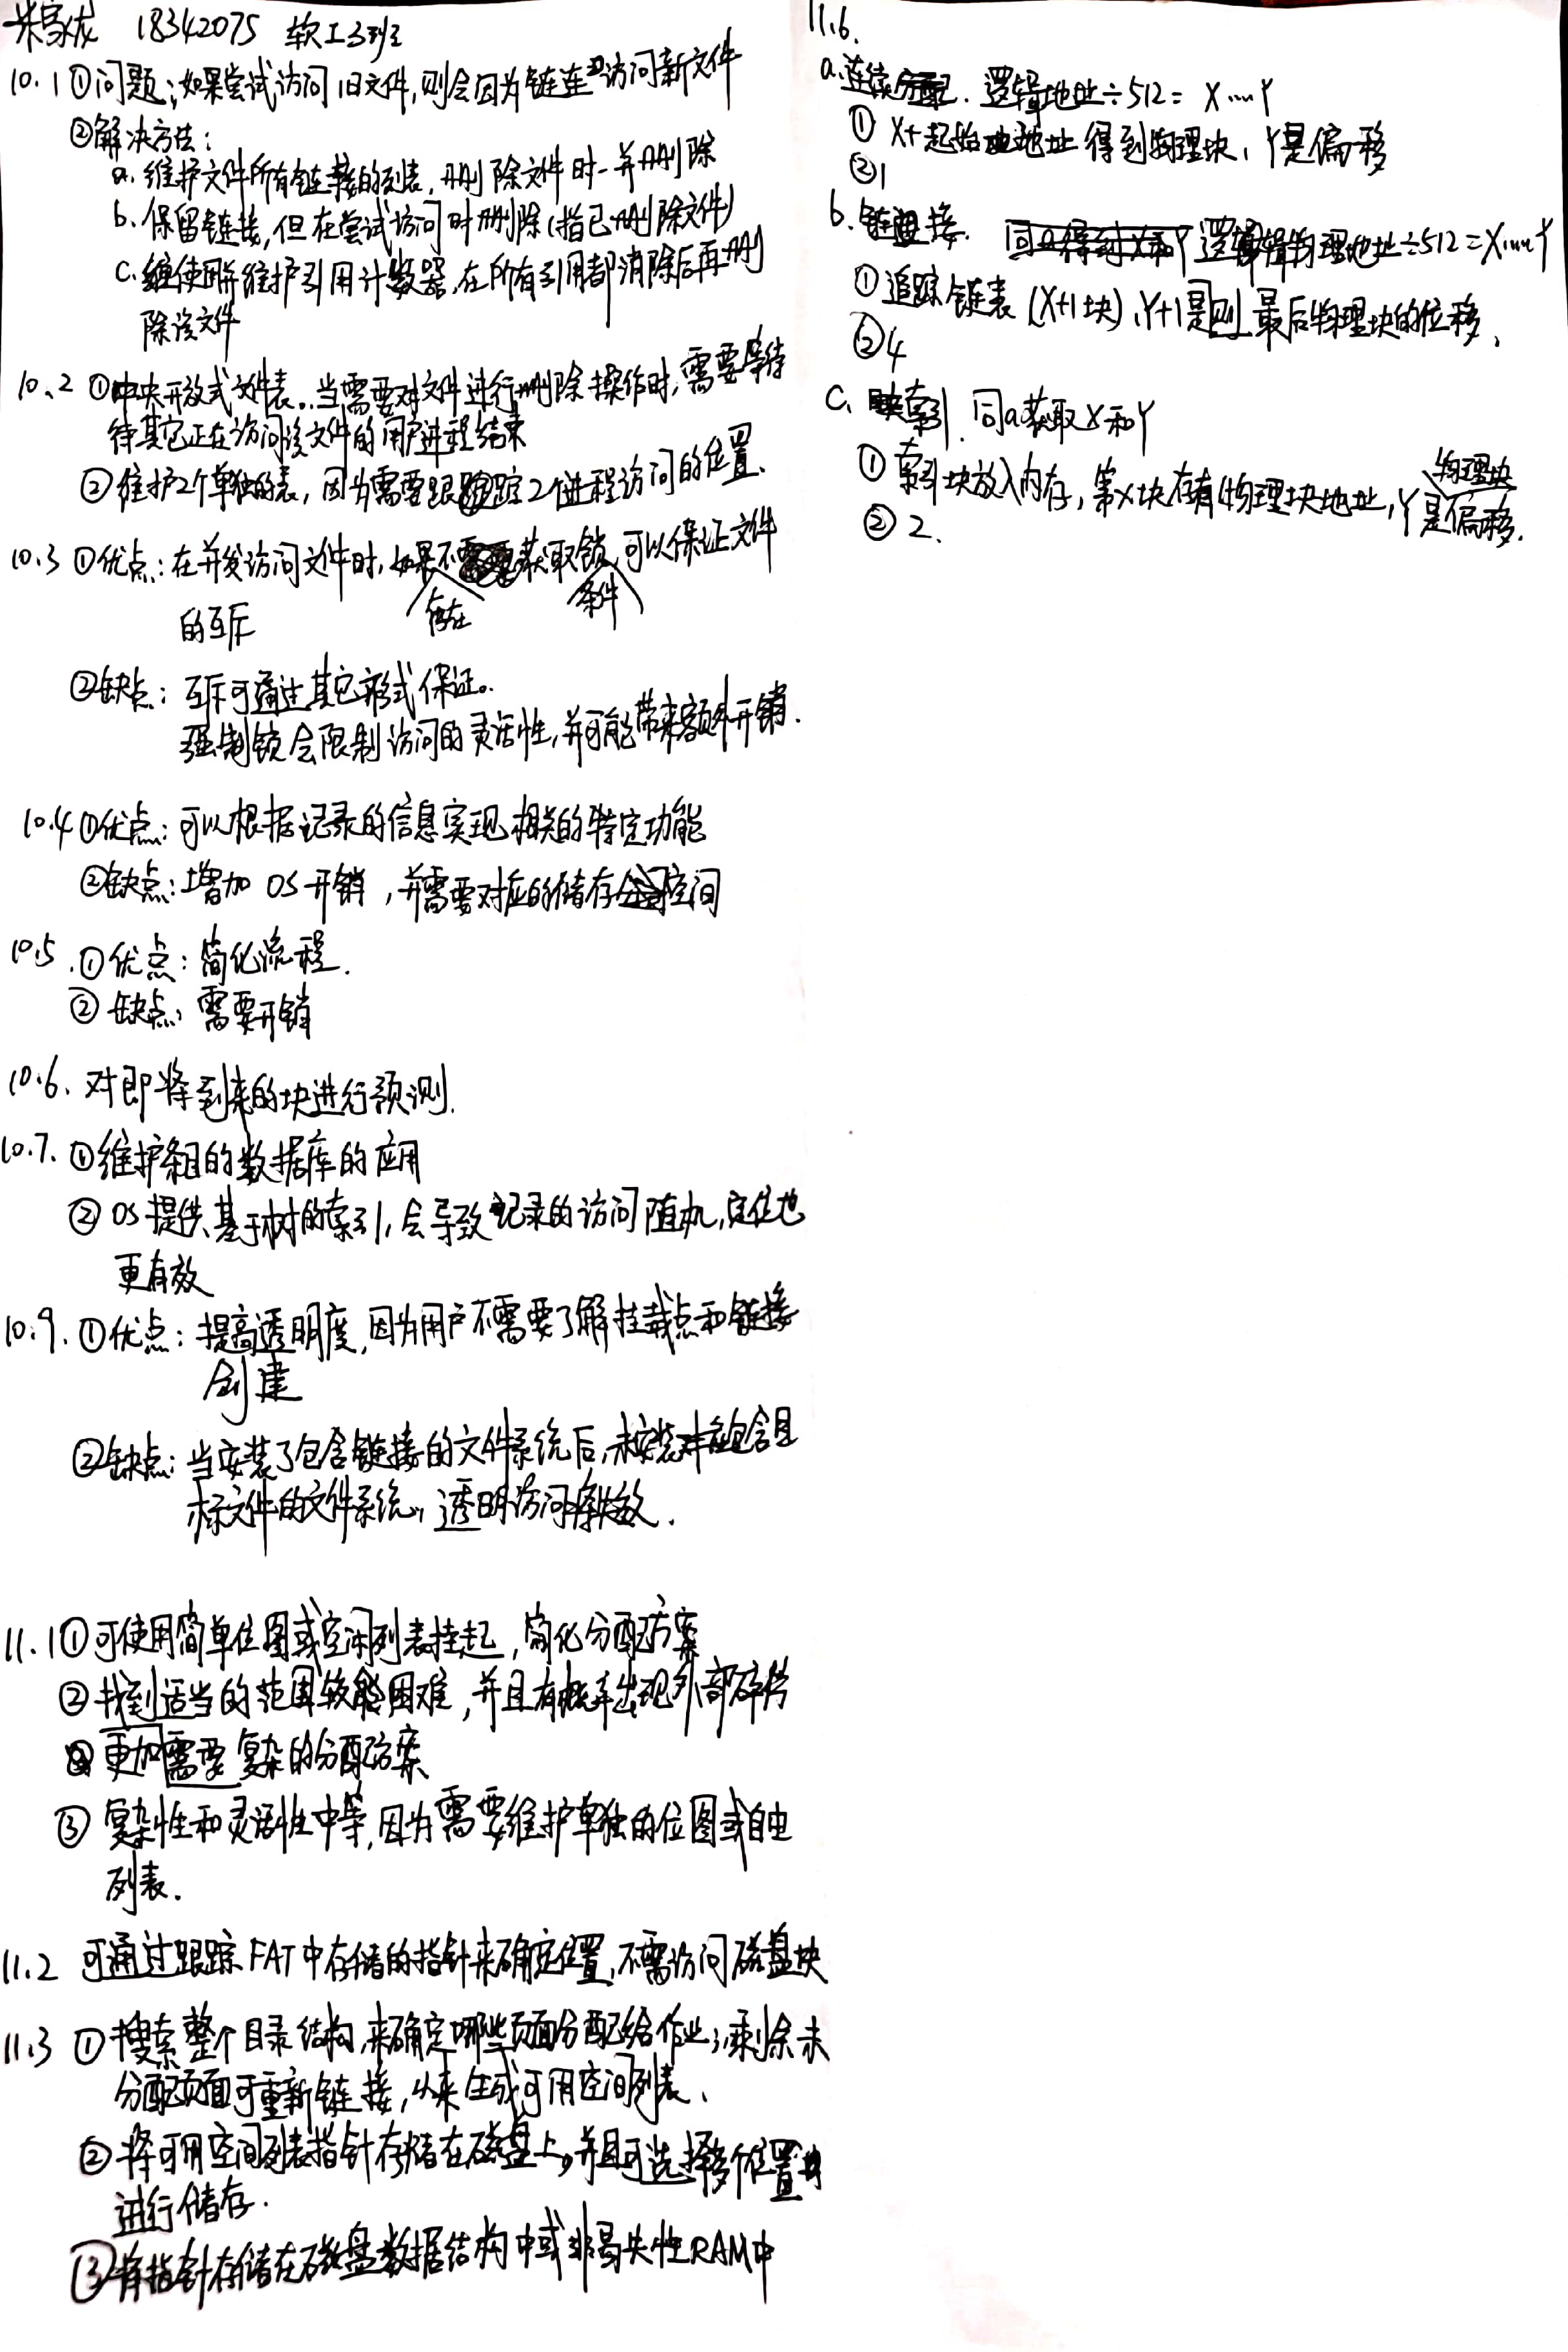 米家龙 18342075 软工3班
10.1 ①问题:如果尝试访问旧文件,则会因为链连访问新文件
②解决方法:
a. 维护文件所有链接的列表,删除文件时一并删除
b. 保留链接,但在尝试访问时删除(指已删除文件)
c. 使用并维护引用计数器,在所有引用都消除后再删
除该文件
10.2 ①中央开放式文件表.当需要对文件进行删除操作时,需要等待
待其它正在访问该文件的用户进程结束
②维护2个单独的表,因为需要跟踪2个进程访问的位置.
10.3 ①优点:在并发访问文件时,如果不存在获取锁条件,可以保证文件
的互斥
②缺点:互斥可通过其它形式保证.
强制锁会限制访问的灵活性,并可能带来额外开销.
10.4 ①优点:可以根据记录的信息实现相关的特定功能
②缺点:增加OS开销,并需要对应的储存空间
10.5 ①优点:简化流程.
②缺点:需要开销
10.6. 对即将到来的块进行预测.
10.7. ①维护条目的数据库的应用
②OS提供基于树的索引,会导致记录的访问随机,定位也
更有效
10.9. ①优点:提高透明度,因为用户不需要了解挂载点和链接
创建
②缺点:当安装了包含链接的文件系统后,未安装包含目
标文件的文件系统,透明访问失效.
11.1 ①可使用简单位图或空闲列表挂起,简化分配方案
②找到适当的范围较困难,并且有概率出现外部碎片
更加需要复杂的分配方案
③复杂性和灵活性中等,因为需要维护单独的位图或自由
列表.
11.2 可通过跟踪FAT中存储的指针来确定位置,不需访问磁盘块
11.3 ①搜索整个目录结构,来确定哪些页面分配给作业;剩余未
分配页面可重新链接,以来生成可用空间列表.
②将可用空间列表指针存储在磁盘上,并且可选择多个位置
进行储存.
③将指针存储在磁盘数据结构中或非易失性RAM中
11.6.
a.连续分配. 逻辑地址÷512=X……Y
①X+起始地址得到物理块,Y是偏移
②1
b.链接. 逻辑物理地址÷512=X……Y
①追踪链表(X+1块),Y+1则是最后物理块的位移.
②4
c. 索引. 同a获取X和Y
①索引块放入内存,第X块存有物理块地址,Y是物理块偏移.
②2.